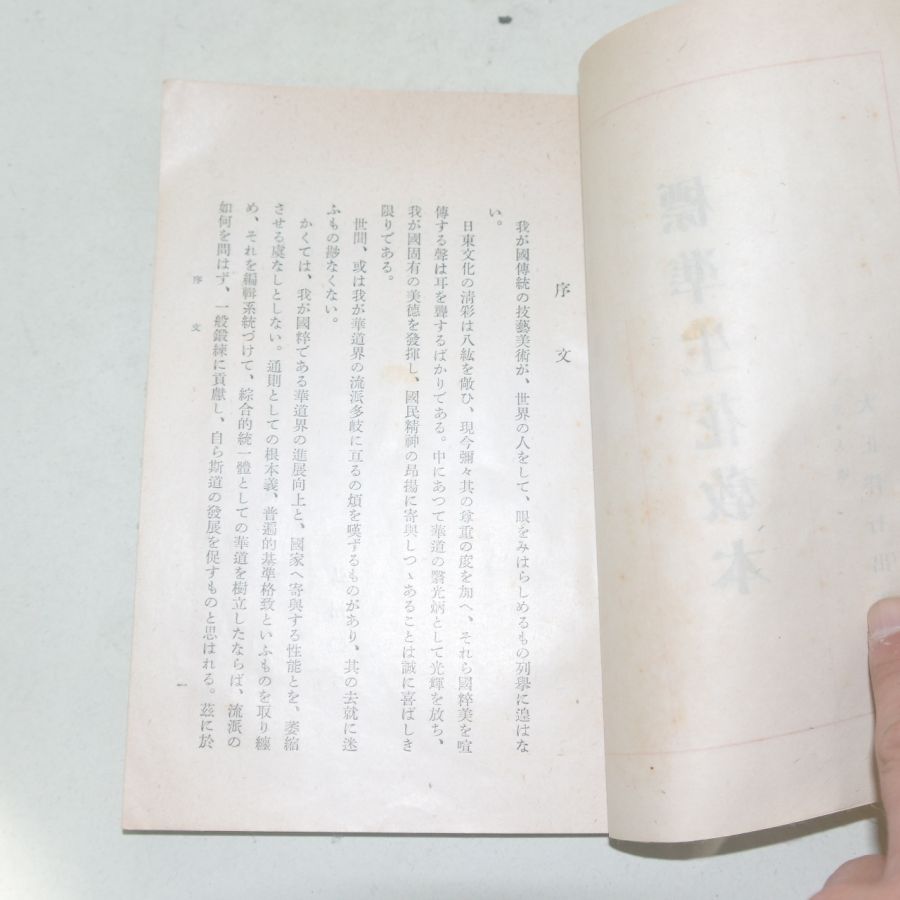 序文
我が國傳統の技藝美術が、世界の人をして、眼をみはらしめるもの列擧に遑はな
い。
日東文化の淸彩は八紘を敵ひ、現今彌々其の尊重の度を加へ、それら國粹美を喧
傳する聲は耳を聾するばかりである。中にあつて華道の翳光炳として光輝を放ち、
我が國固有の美德を發揮し、國民精神の昂揚に寄與しつゝあることは誠に喜ばしき
限りである。
世間、或は我が華道界の流派多岐に亙るの煩を嘆ずるものがあり、其の去就に迷
ふもの尠なくない。
かくては、我が國粹である華道界の進展向上と、國家へ寄與する性能とを、萎縮
させる處なしとしない。通則としての根本義、普遍的基準格致といふものを取り纏
め、それを編輯系統づけて、綜合的統一體としての華道を樹立したならば、流派の
如何を問はず、一般鍛練に貢獻し、自ら斯道の發展を促すものと思はれる。茲に於
序文
一
標準生花敎本